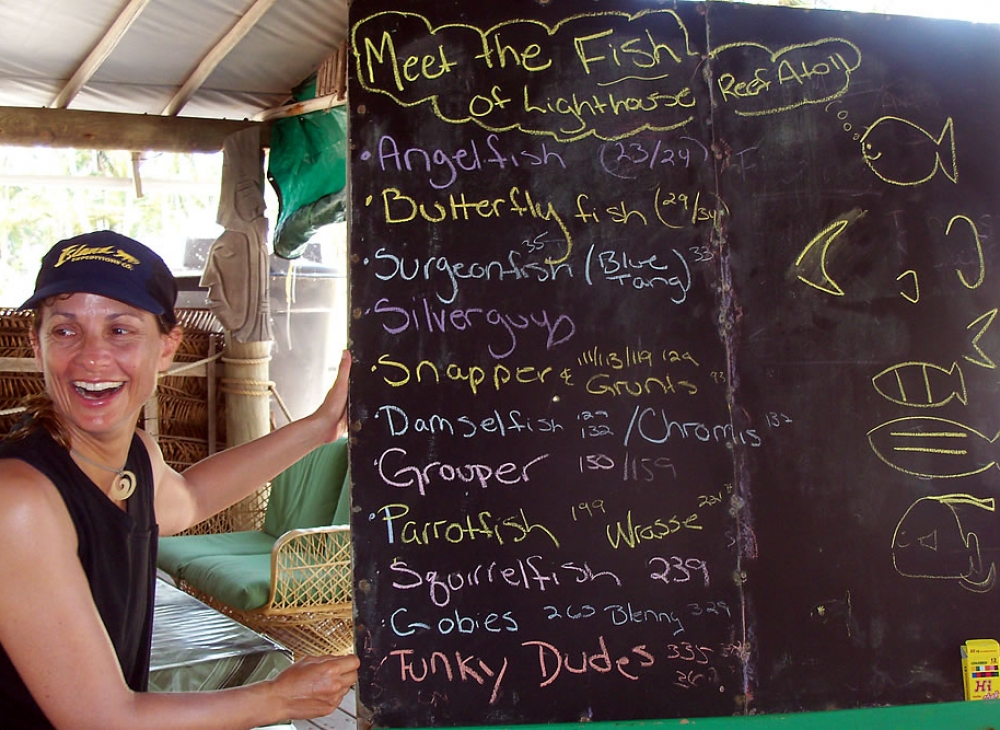 Meet the Fish
of Lighthouse Reef Atoll
• Angelfish (23/24)
• Butterfly fish (29/34)
• Surgeonfish 35 (Blue Tang) 33
• Silverguyp
• Snapper & 111/113/119 129 Grunts 93
• Damselfish 129 132 / Chromis 132
• Grouper 150/159
• Parrotfish 199 Wrasse 221
• Squirrelfish 239
• Gobies 263 Blenny 329
• Funky Dudes 335
Island
EXPEDITIONS CO.
Hi